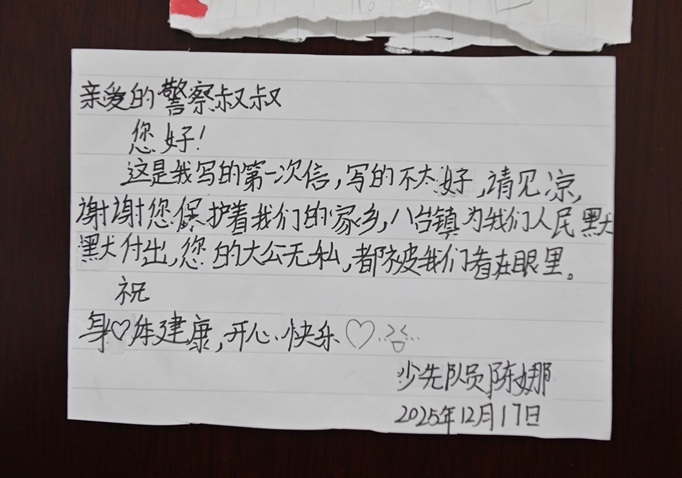 亲爱的警察叔叔
您好!
这是我写的第一次信,写的不大好,请见凉,
谢谢您保护着我们的家乡,八台镇为我们人民默
默付出,您的大公无私,都被我们看在眼里。
祝
身♡体建康,开心快乐♡
少先队员陈娜
2025年12月17日